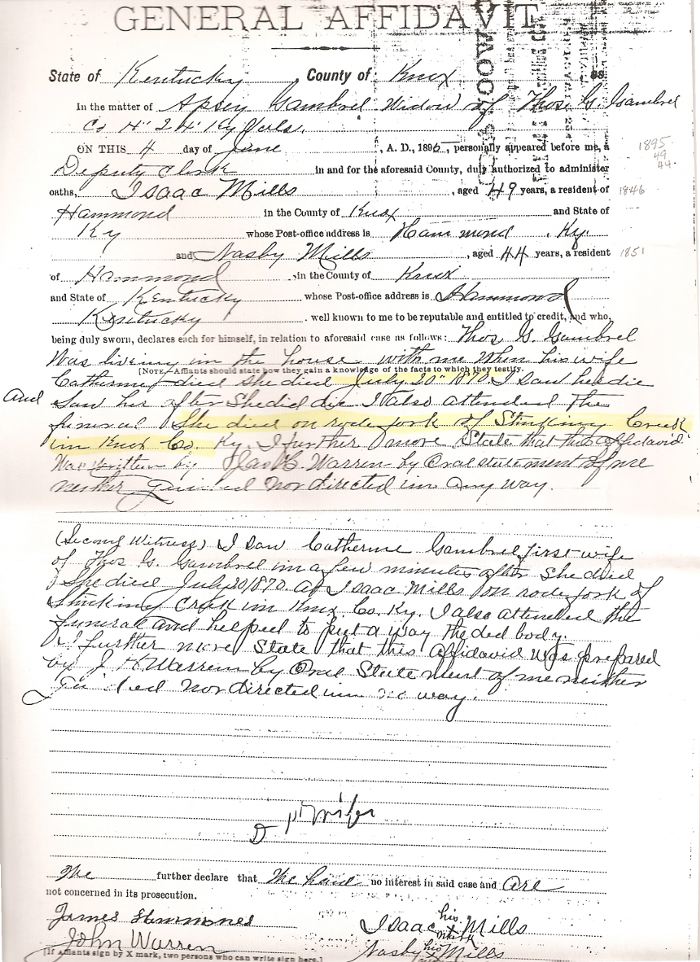 GENERAL AFFIDAVIT
State of Kentucky County of Knox ss
In the matter of Apsey Gambrel Widow of Thos G Gambrel
Co "H" 24" Ky Vols.
ON THIS 4 day of June, A. D., 1896, personally appeared before me, a 1895
Deputy Clerk in and for the aforesaid County, duly authorized to administer 49
44
oaths, Isaac Mills, aged 49 years, a resident of 1846
Hammond in the County of Knox and State of
Ky whose Post-office address is Hammond, Ky.
and Nasby Mills, aged 44 years, a resident 1851
of Hammond, in the County of Knox
and State of Kentucky whose Post-office address is Hammond
Kentucky. well known to me to be reputable and entitled to credit, and who,
being duly sworn, declares each for himself, in relation to aforesaid case as follows: Thos G Gambrel
Was living in the house with me When his wife
[NOTE.—Affiants should state how they gain a knowledge of the facts to which they testify.
Catherine died She died July 20" 1870. I Saw her die
And Saw her after She did die I also attended the
funeral She died on rode fork of Stinking Creek
in Knox Co. Ky. I further more State that this affidavid
Was written by H. Warren by Oral statement of me
neither nor directed in any way.
(Second Witness) I Saw Catherine Gambrel first wife
of Thos G. Gambrel in a few minutes after She died
She died July 20 1870 at Isaac Mills on rode fork of
Stinking Creek in Knox Co. Ky. I also attended the
funeral and helped to put a way the ded body.
I further more State that this Affidavid was prepared
by J H Warren by Oral Statement of me neither
nor directed in no way.
We further declare that We have no interest in said case and Are
not concerned in its prosecution.
James Hammons Isaac his X mark Mills
John Warren Nasby his X Mills
[If Affiants sign by X mark, two persons who can write sign here.]